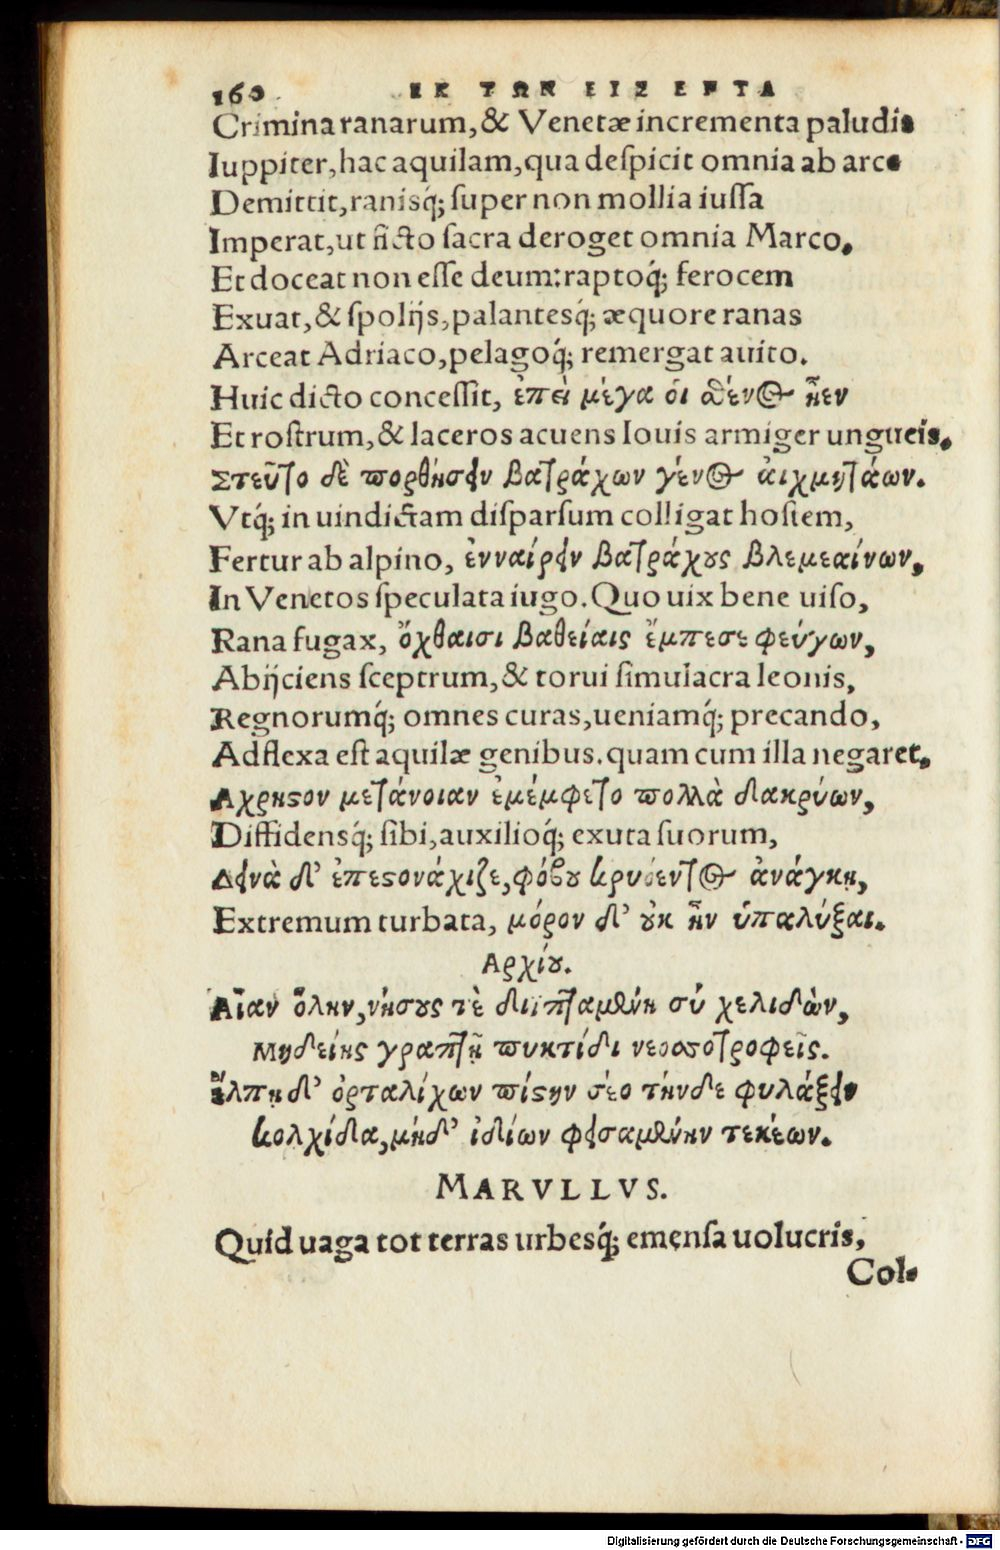 160 ΕΚ ΤΩΝ ΕΙΣ ΕΝΤΑ
Crimina ranarum, & Venetæ incrementa paludis
Iuppiter, hac aquilam, qua deſpicit omnia ab arce
Demittit, ranisq́; ſuper non mollia iuſſa
Imperat, ut ficto ſacra deroget omnia Marco.
Et doceat non eſſe deum: raptoq́; ferocem
Exuat, & ſpolijs, palantesq́; æquore ranas
Arceat Adriaco, pelagoq́; remergat auito.
Huic dicto conceſſit, ἐπεὶ μέγα οἱ ϑένος ἦεν
Et roſtrum, & laceros acuens Iouis armiger ungueis.
Στεῦτο δὲ πορθήσειν βατράχων γένος αἰχμητάων.
Vtq́; in uindictam diſparſum colligat hoſtem,
Fertur ab alpino, ἐνναίρειν βατράχους βλεμεαίνων,
In Venetos ſpeculata iugo. Quo uix bene uiſo,
Rana fugax, ὄχθαισι βαθείαις ἔμπεσε φεύγων,
Abijciens ſceptrum, & torui ſimulacra leonis,
Regnorumq́; omnes curas, ueniamq́; precando,
Adflexa eſt aquilæ genibus. quam cum illa negaret.
Αχρηστον μετάνοιαν ἐμέμφετο πολλὰ δακρύων,
Diffidensq́; ſibi, auxilioq́; exuta ſuorum,
Δεινὰ δ' ἐπεστονάχιζε, φόβου κρυόεντος ἀνάγκῃ,
Extremum turbata, μόρον δ' οὐκ ἦν ὑπαλύξαι.
Αρχίου.
Αἶαν ὅλην, νήσους τὲ διιπταμένη σὺ χελιδὼν,
Μηδείης γραπτῇ πυκτίδι νεοσσοτροφεῖς.
Ἔλπῃ δ' ὀρταλίχων πίστην σέο τήνδε φυλάξειν
Κολχίδα, μήδ' ἰδίων φεισαμένην τεκέων.
MARVLLVS.
Quid uaga tot terras urbesq́; emenſa uolucris,
Col-
Digitalisierung gefördert durch die Deutsche Forschungsgemeinschaft - DFG